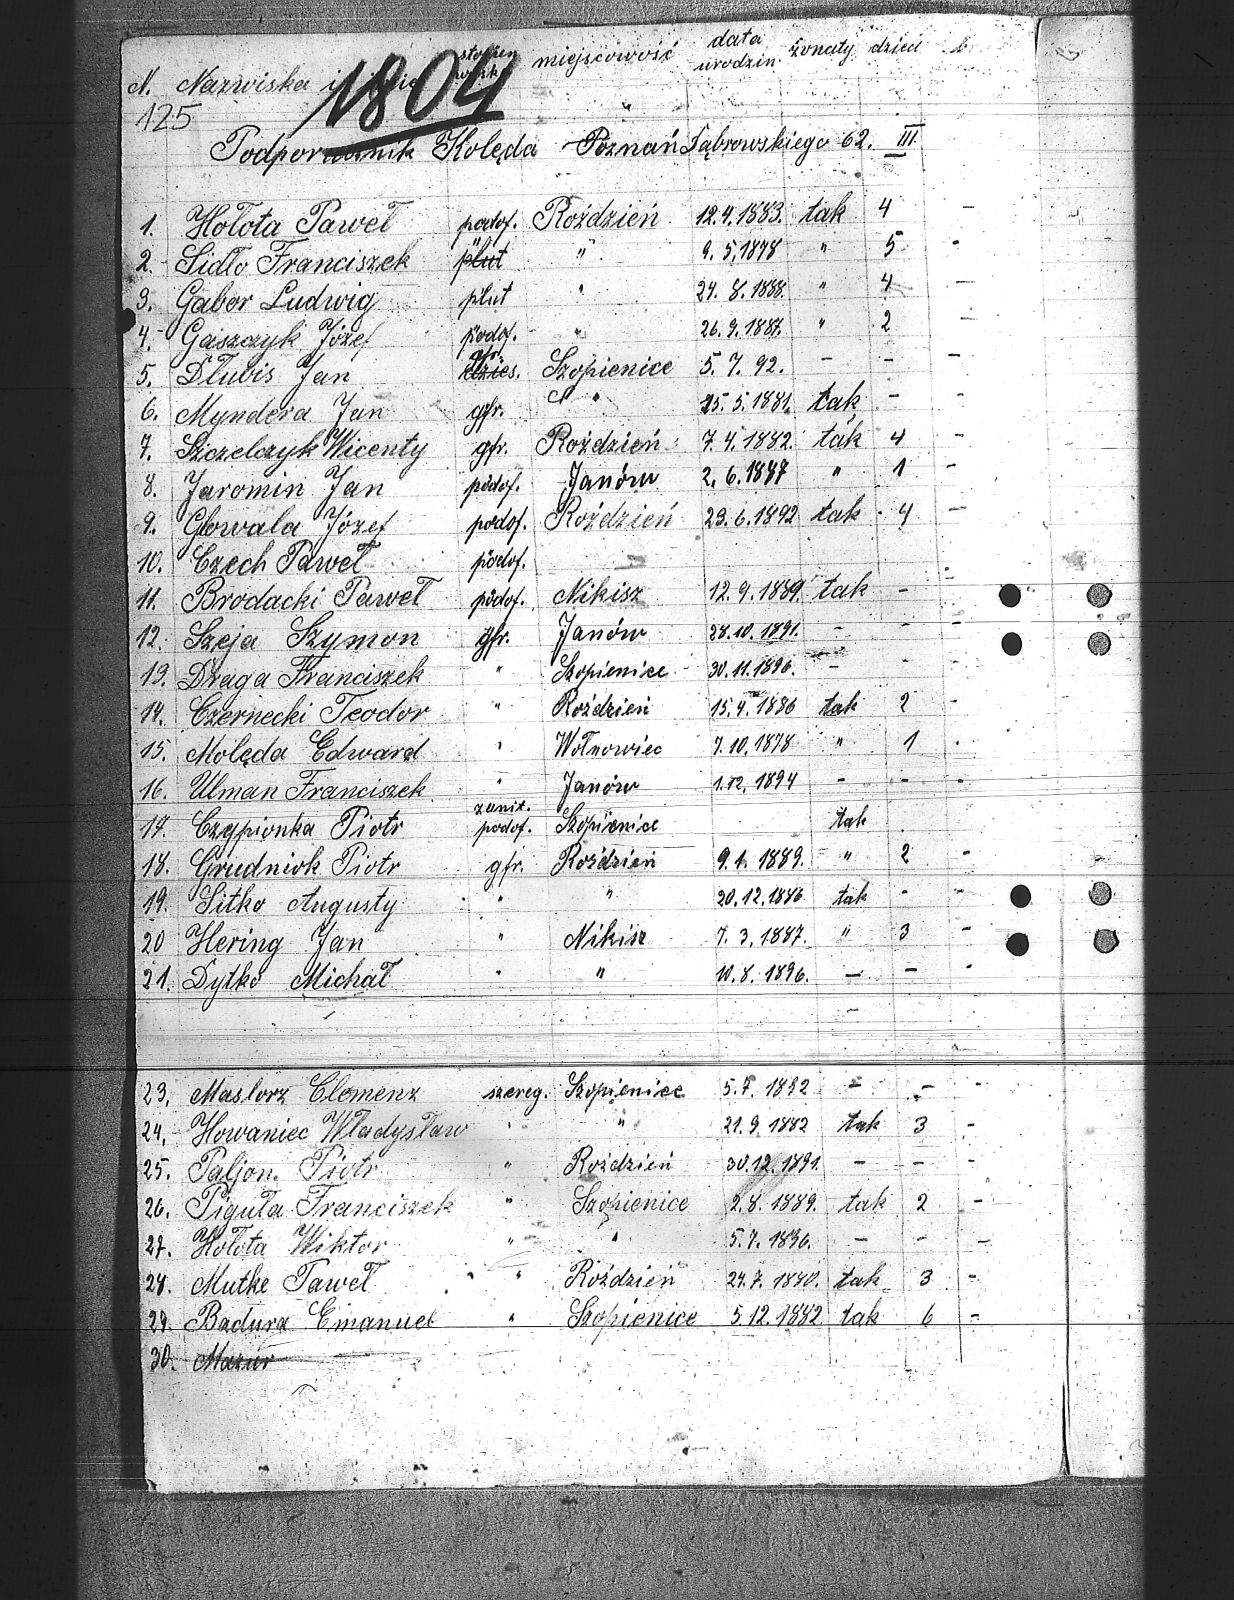 N. Nazwiska i stopień miejscowość data urodzin żonaty dzieci
1804
125
Podporucznik Kolęda Poznań Dąbrowskiego 62. III
1. Hołota Paweł podof. Roździeń 12.4.1883. tak 4 -
2. Sidło Franciszek plut " 9.5.1878 " 5 -
3. Gabor Ludwig plut " 24.8.1888. " 4 -
4. Gaszczyk Józef podof. " 26.9.1887. " 2 -
5. Dlubis Jan gfr. Szopienice 5.7.92. - - -
6. Myndera Jan gfr. " 25.5.1881. tak - -
7. Szczelczyk Wicenty gfr. Roździeń 7.4.1882. tak 4 -
8. Jaromin Jan podof. Janów 2.6.1887 " 1 -
9. Głowala Józef podof. Roździeń 23.6.1892 tak 4 -
10. Czech Paweł podof.
11. Brodacki Paweł podof. Nikisz 12.9.1889. tak - -
12. Szeja Szymon gfr. Janów 28.10.1891. - - -
13. Draga Franciszek " Szopienice 30.11.1896. - -
14. Czernecki Teodor " Roździeń 15.4.1886 tak 2 -
15. Molęda Edward " Wełnowiec 7.10.1878 " 1 -
16. Ulman Franciszek " Janów 1.12.1894 - - -
17. Czypionka Piotr sanit. podof. Szopienice tak
18. Grudniok Piotr gfr. Roździeń 9.1.1889. " 2 -
19. Sitko Augusty " " 20.12.1886 tak - -
20 Hering Jan " Nikisz 7.3.1887. " 3 -
21. Dytko Michał " " 10.8.1896. - - -
23. Maslorz Clemenz szereg. Szopienice 5.7.1892 - - -
24. Howaniec Władysław " " 21.9.1882 tak 3 -
25. Paljon Piotr " Roździeń 30.12.1891. - - -
26. Piguła Franciszek " Szopienice 2.8.1889. tak 2 -
27. Hołota Wiktor " " 5.7.1896. - - -
28. Mutke Paweł " Roździeń 24.7.1880. tak 3 -
29. Badura Emanuel " Szopienice 5.12.1882 tak 6 -
30. Mazur